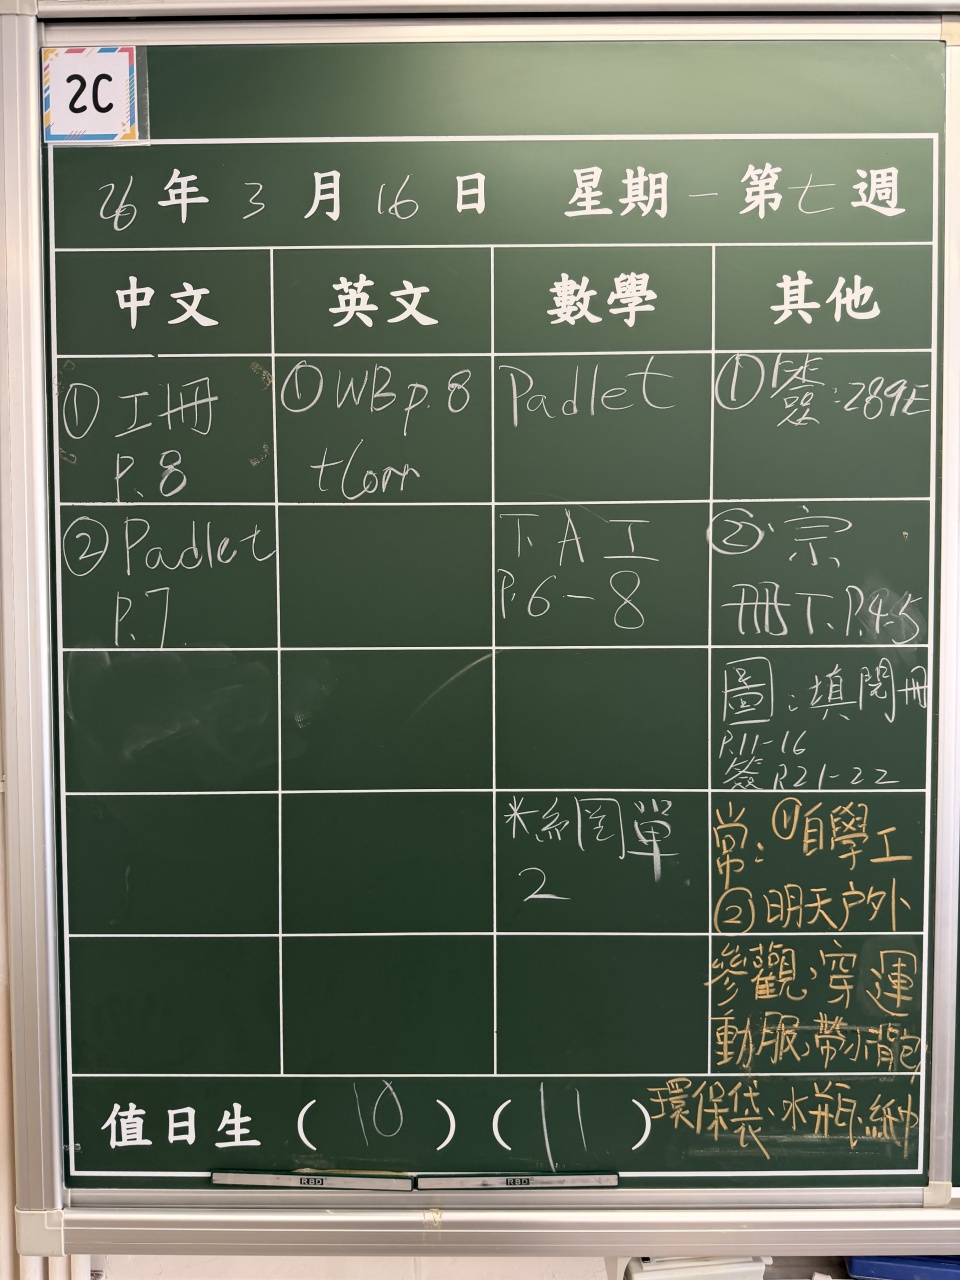 2C
26年3月16日 星期一第七週
中文 英文 數學 其他
①工冊
P.8
①WB p.8
+Corr
Padlet
①簽:289E
②Padlet
P.7
T.A工
P.6-8
②宗
冊下.P.4-5
圖:填閱冊
P.11-16
簽P.21-22
米綱單
2
常:①自學工
②明天户外
參觀,穿運
動服,帶小背包,
環保袋、水瓶、紙巾
值日生 (10) (11)